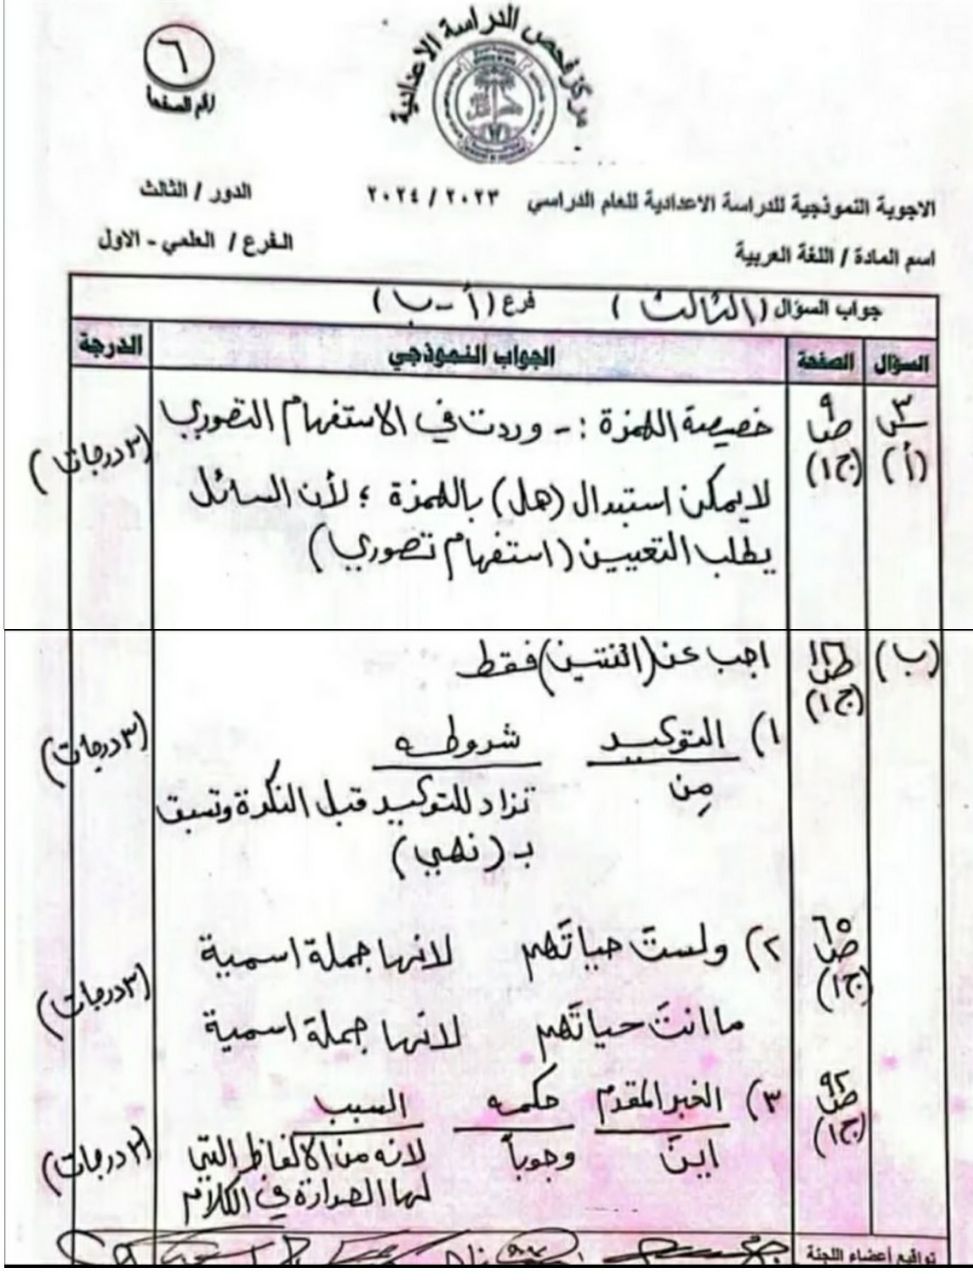 مركز فحص الدراسة الاعدادية
٦
رقم الصفحة
الاجوبة النموذجية للدراسة الاعدادية للعام الدراسي ٢٠٢٣ / ٢٠٢٤ الدور / الثالث
اسم المادة / اللغة العربية الفرع / العلمي - الاول
جواب السؤال (الثالث) فرع (أ - ب)
السؤال الصفحة الجواب النموذجي الدرجة
س٣ ص٩ خصيصة الهمزة :- وردت في الاستفهام التصوري (٣ درجات)
(أ) (ج١) لا يمكن استبدال (هل) بالهمزة ؛ لأن السائل
يطلب التعيين (استفهام تصوري)
(ب) اجب عن (اثنتين) فقط
(ج١)
١) التوكيد شروطه (٣ درجات)
مِن تزاد للتوكيد قبل النكرة وتسبق
بـ (نهي)
٢) ولستَ حياتَهم لانها جملة اسمية ص٦٥
(ج١) (٣ درجات)
ما انتَ حياتَهم لانها جملة اسمية
٣) الخبر المقدم حكمه السبب ص٩٢
(ج١)
اينَ وجوباً لانه من الالفاظ التي (٣ درجات)
لها الصدارة في الكلام
تواقيع أعضاء اللجنة